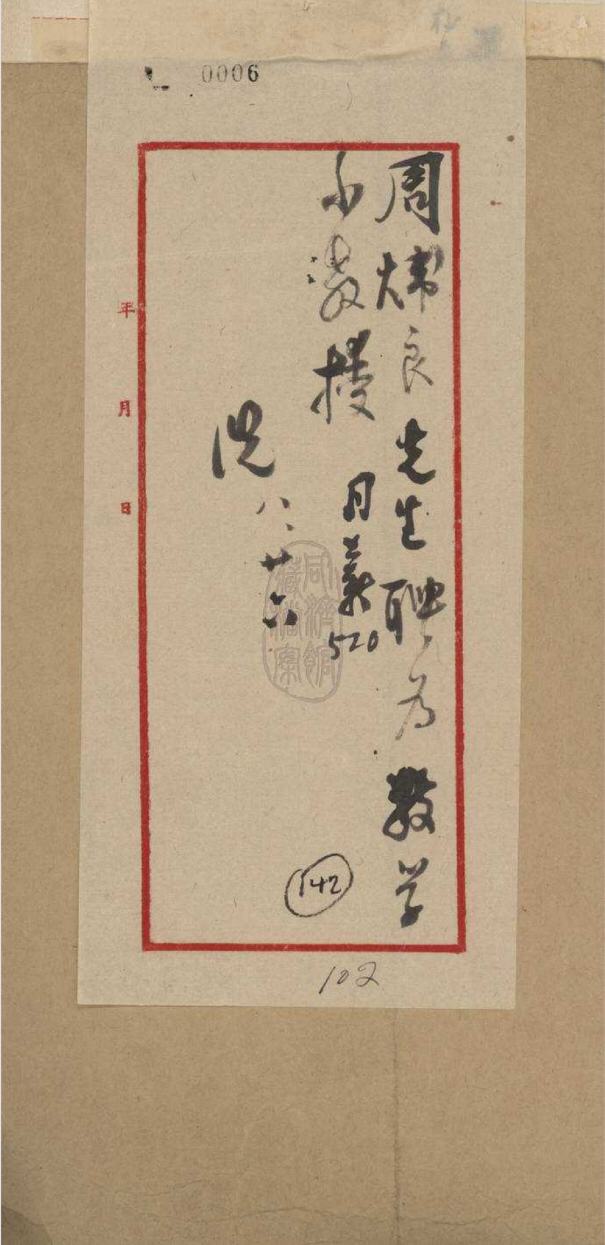 0006
周煒良先生聘为数学
系教授
月薪520
洗 八、廿六
年 月 日
同济馆藏档案
142
102